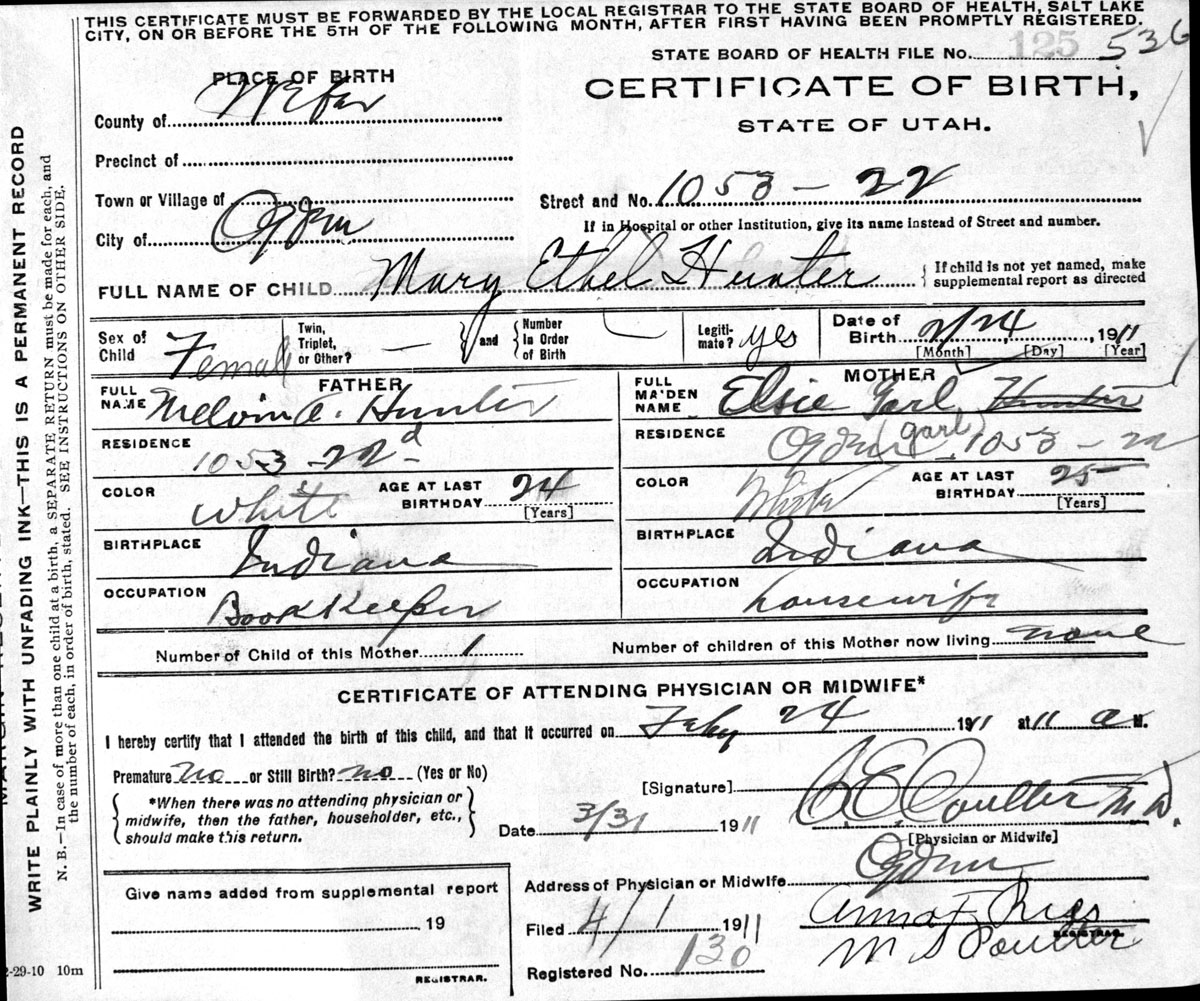 THIS CERTIFICATE MUST BE FORWARDED BY THE LOCAL REGISTRAR TO THE STATE BOARD OF HEALTH, SALT LAKE
CITY, ON OR BEFORE THE 5TH OF THE FOLLOWING MONTH, AFTER FIRST HAVING BEEN PROMPTLY REGISTERED.
STATE BOARD OF HEALTH FILE No. 125 536
PLACE OF BIRTH
CERTIFICATE OF BIRTH,
STATE OF UTAH.
County of
Precinct of
Town or Village of
Street and No. 1053 - 22
City of Ogden
If in Hospital or other Institution, give its name instead of Street and number.
FULL NAME OF CHILD Mary Ethel Hunter
{ If child is not yet named, make
supplemental report as directed
Sex of Child Female
Twin, Triplet, or Other? —
} and {
Number In Order of Birth
Legiti-mate? yes
Date of Birth 2/24, 1911
[Month] [Day] [Year]
FATHER
FULL NAME Melvin A. Hunter
RESIDENCE 1053 - 22d
COLOR White
AGE AT LAST BIRTHDAY 24
[Years]
BIRTHPLACE Indiana
OCCUPATION BookKeeper
MOTHER
FULL MAIDEN NAME Elsie Garl Hunter
RESIDENCE Ogden (Garl) 1053 - 22
COLOR White
AGE AT LAST BIRTHDAY 25
[Years]
BIRTHPLACE Indiana
OCCUPATION housewife
Number of Child of this Mother 1
Number of children of this Mother now living none
CERTIFICATE OF ATTENDING PHYSICIAN OR MIDWIFE*
I hereby certify that I attended the birth of this child, and that it occurred on Feby 24 1911 at 11 a M.
Premature no or Still Birth? no (Yes or No)
[Signature] C E Coulter M.D.
[Physician or Midwife]
{ *When there was no attending physician or
midwife, then the father, householder, etc.,
should make this return. }
Date 3/31 1911
Address of Physician or Midwife Ogden
Give name added from supplemental report
19
REGISTRAR.
Filed 4/1 1911
Anna F.
REGISTRAR.
Registered No. 130
M S Coulter
WRITE PLAINLY WITH UNFADING INK—THIS IS A PERMANENT RECORD
N. B.—In case of more than one child at a birth, a SEPARATE RETURN must be made for each, and
the number of each, in order of birth, stated. SEE INSTRUCTIONS ON OTHER SIDE.
2-29-10 10m